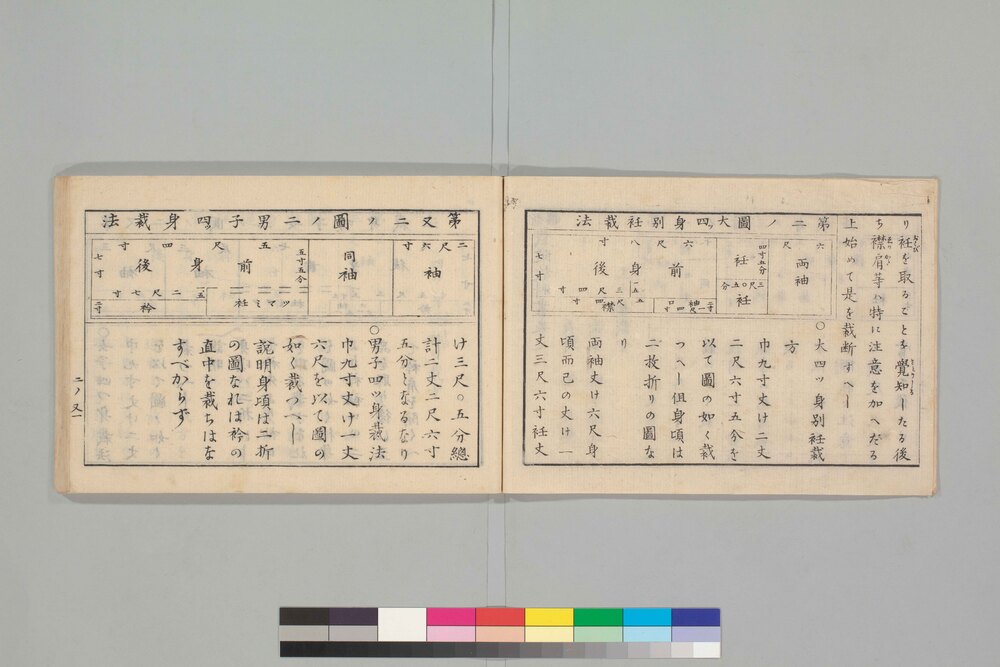 り衽を取るごとを覺知したる後
ち襟肩等ハ特に注意を加へだる
上始めて是を裁断すへし
第二ノ圖大四ッ身別衽裁法
六尺
両袖
四寸五分
衽
三尺〇五分
衽
六尺八寸
前
身
後
七寸
襟
〇大四ッ身別衽裁
方
巾九寸丈け二丈
二尺六寸五分を
以て圖の如く裁
つへし但身頃は
二枚折りの圖な
り
両袖丈け六尺身
頃而已の丈け一
丈三尺六寸衽丈
第又二ノ圖ノ二男子四ッ身裁法
二尺六寸
袖
同袖
五尺四寸
五寸五分
前
身
後
七寸
ツマミ衽
二尺七寸
衿
二寸
け三尺〇五分總
計二丈二尺六寸
五分となるなり
〇男子四ッ身裁法
巾九寸丈け一丈
六尺を以て圖の
如く裁つへし
說明身頃は二折
の圖なれは衿の
直中を裁ちはな
すべからず
二ノ又一